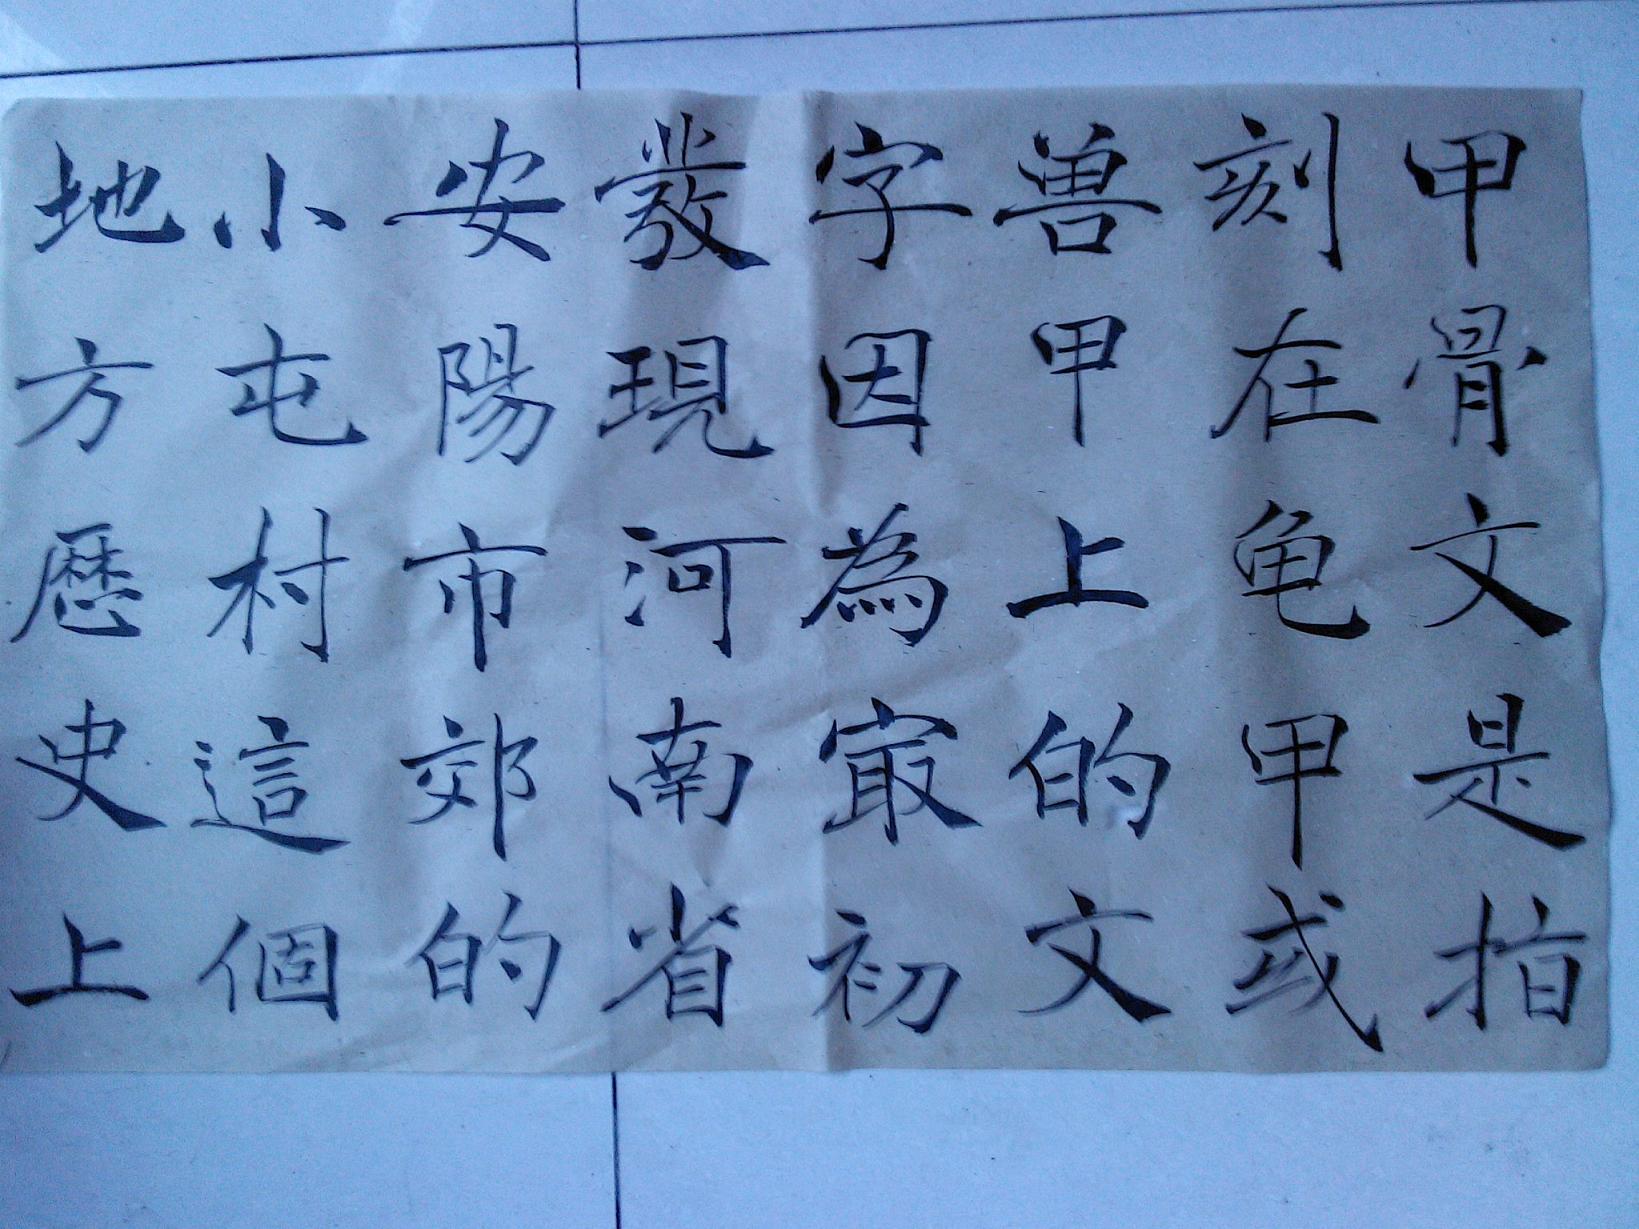 甲骨文是指
刻在龟甲或
兽甲上的文
字因為冣初
發現河南省
安陽市郊的
小屯村這個
地方歷史上